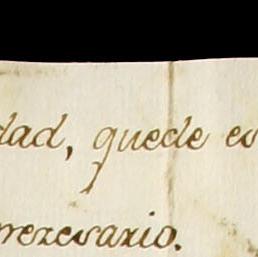 dad, quede es
necesario.